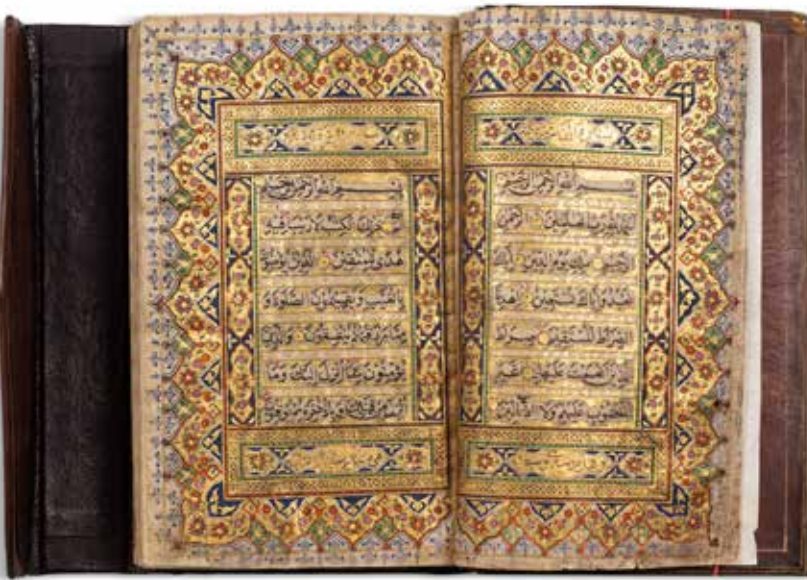 بسم الله الرحمن الرحيم
الحمد لله رب العالمين الرحمن
الرحيم ملك يوم الدين اياك
نعبد واياك نستعين اهدنا
الصراط المستقيم صراط
الذين انعمت عليهم غير
المغضوب عليهم ولا الضالين
بسم الله الرحمن الرحيم
الم ذلك الكتب لا ريب فيه
هدى للمتقين الذين يؤمنون
بالغيب ويقيمون الصلوة و
مما رزقناهم ينفقون والذين
يؤمنون بما انزل اليك وما
انزل من قبلك وبالاخرة هم يوقنون